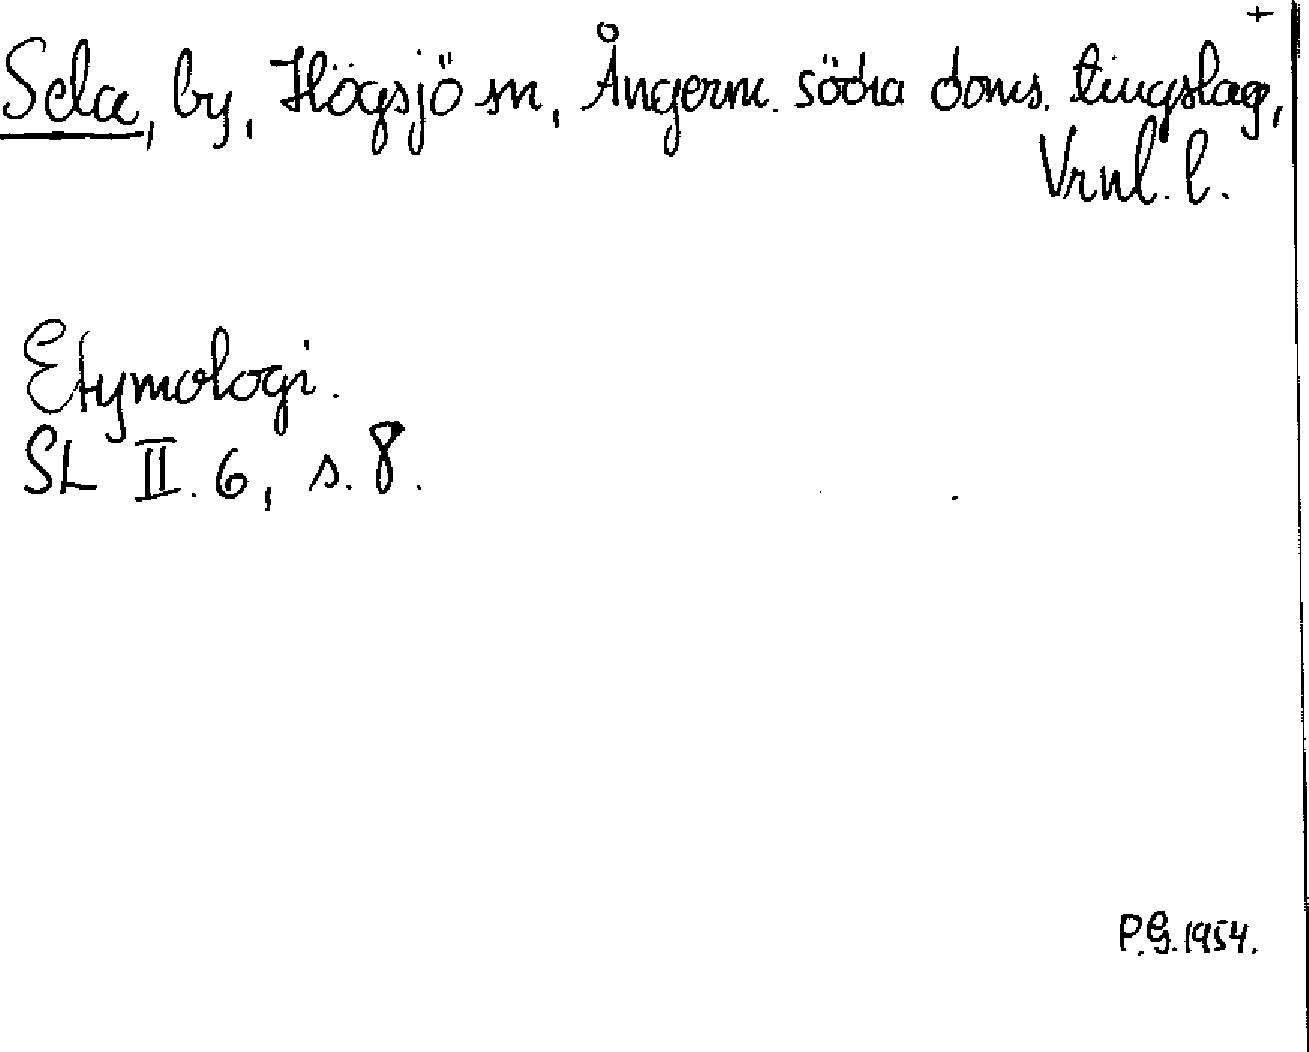 +
Sela, by, Högsjö sn, Ångerm. södra doms. tingslag,
Vrnl. l.
Etymologi.
SL II. 6, s. 8.
P.G. 1954.